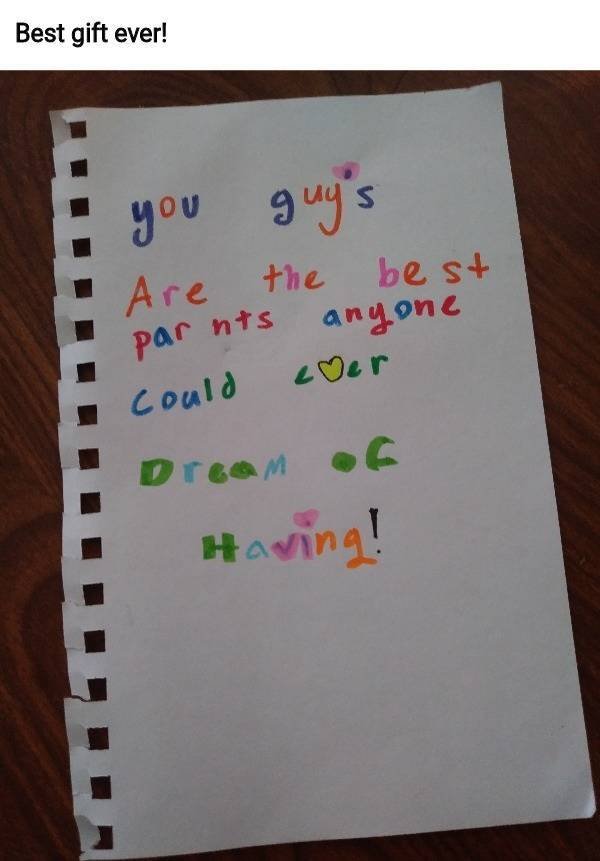 Best gift ever!
you guy's
Are the best
par nts anyone
could ever
Dream of
Having!